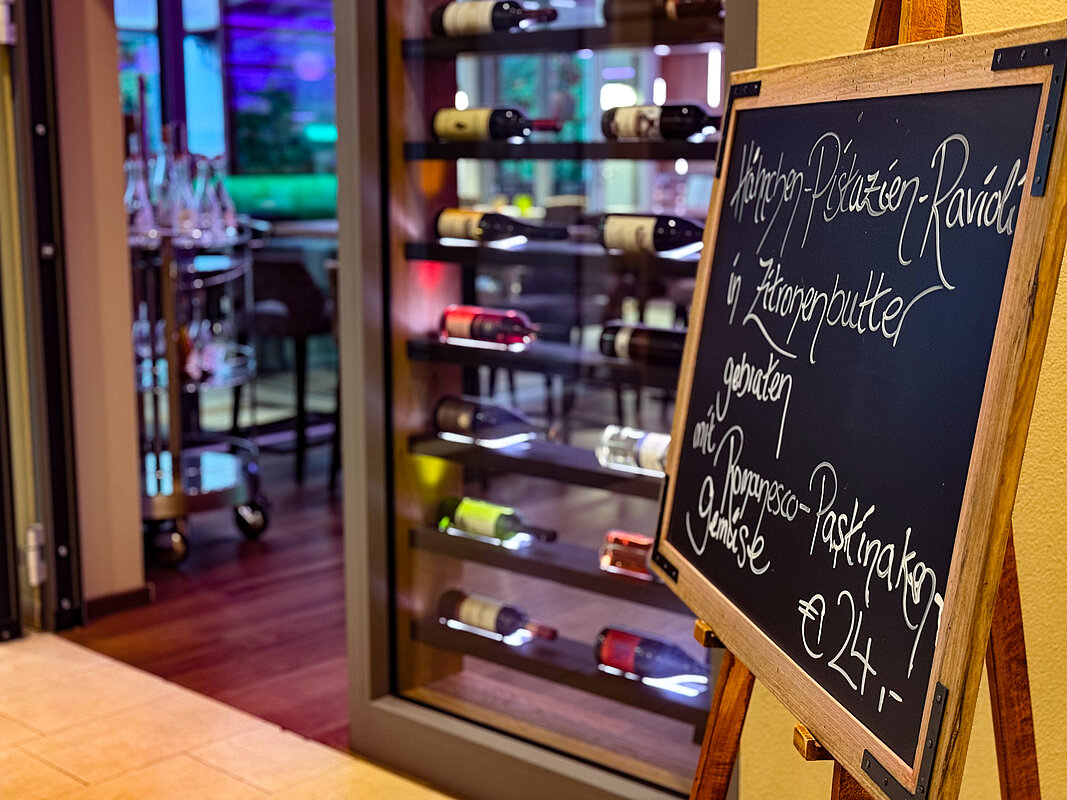 Hähnchen-Pistazien-Ravioli
in Zitronenbutter
gebraten
mit Romanesco-Pastinaken-
Gemüse
€ 24,-